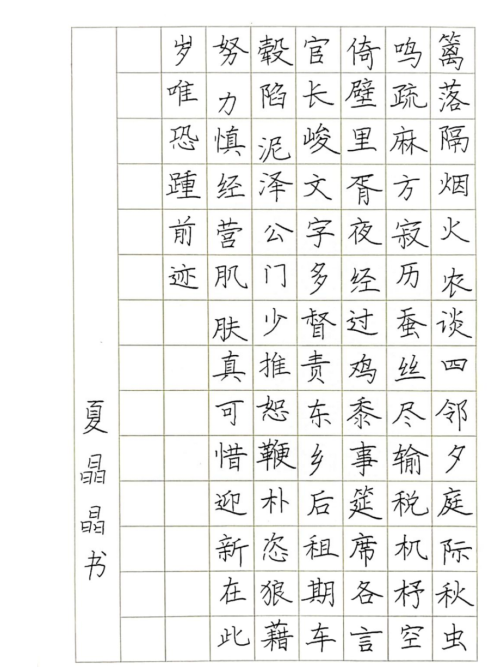 篱落隔烟火农谈四邻夕庭际秋虫
鸣疏麻方寂历蚕丝尽输税机杼空
倚壁里胥夜经过鸡黍事筵席各言
官长峻文字多督责东乡后租期车
毂陷泥泽公门少推恕鞭朴恣狼藉
努力慎经营肌肤真可惜迎新在此
岁唯恐踵前迹
夏晶晶书